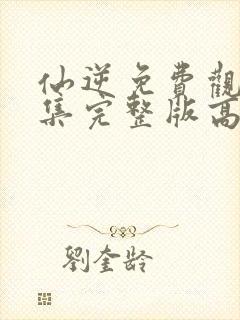 仙逆免費觀
集完整版高
劉奎齡